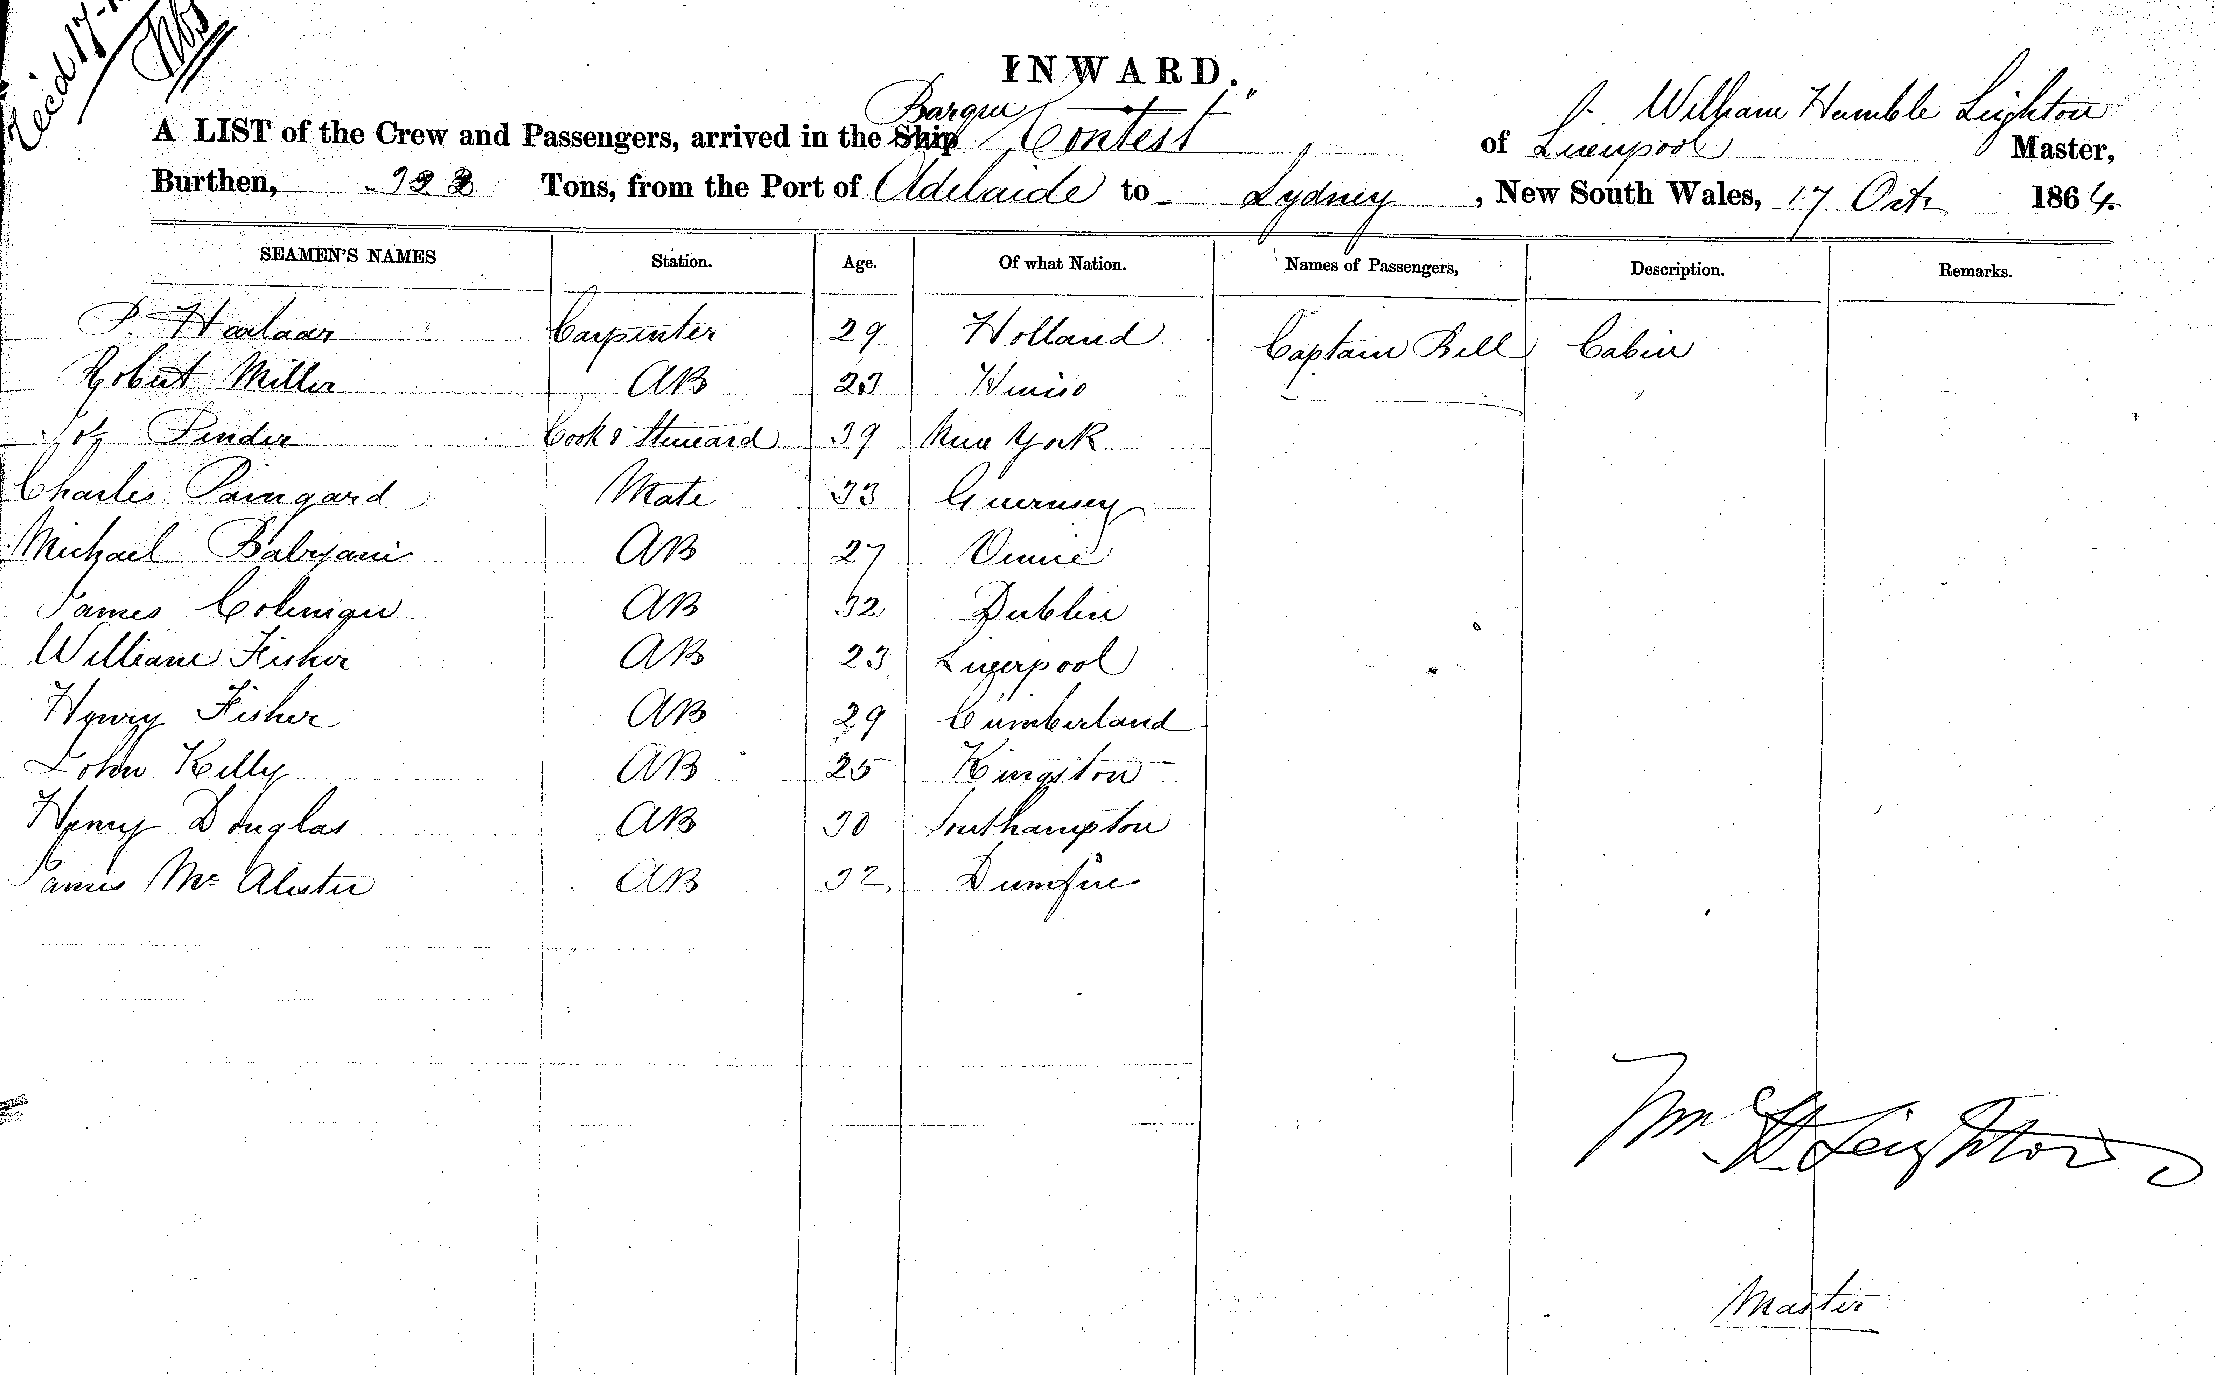 INWARD.
Barque "Contest" William Humble Leighton
A LIST of the Crew and Passengers, arrived in the Ship , of Liverpool Master,
Burthen, Tons, from the Port of Adelaide to Sydney , New South Wales, 17 Oct 1864.
SEAMEN'S NAMES Station. Age. Of what Nation. Names of Passengers, Description. Remarks.
P. Carpenter 29 Holland Captain Bell Cabin
Robert Miller AB 23
Pinder Cook & Steward 39 New York
Charles Paingard Mate 33 Guernsey
Michael AB 27
James AB 32 Dublin
William Fisher AB 23 Liverpool
Henry Fisher AB 29 Cumberland
John Kelly AB 25 Kingston
Henry Douglas AB 30 Southampton
James Mc Alister AB 32
Wm H Leighton
Master